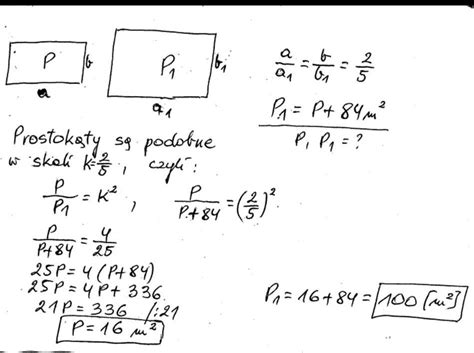 P b P₁ b₁
a a₁
a/a₁ = b/b₁ = 2/5
P₁ = P + 84 m²
P, P₁ = ?
Prostokąty są podobne
w skali K=2/5, czyli:
P/P₁ = K² , P/P+84 = (2/5)²
P/P+84 = 4/25
25P = 4(P+84)
25P = 4P + 336
21P = 336 /:21
P = 16 m²
P₁ = 16 + 84 = 100 [m²]